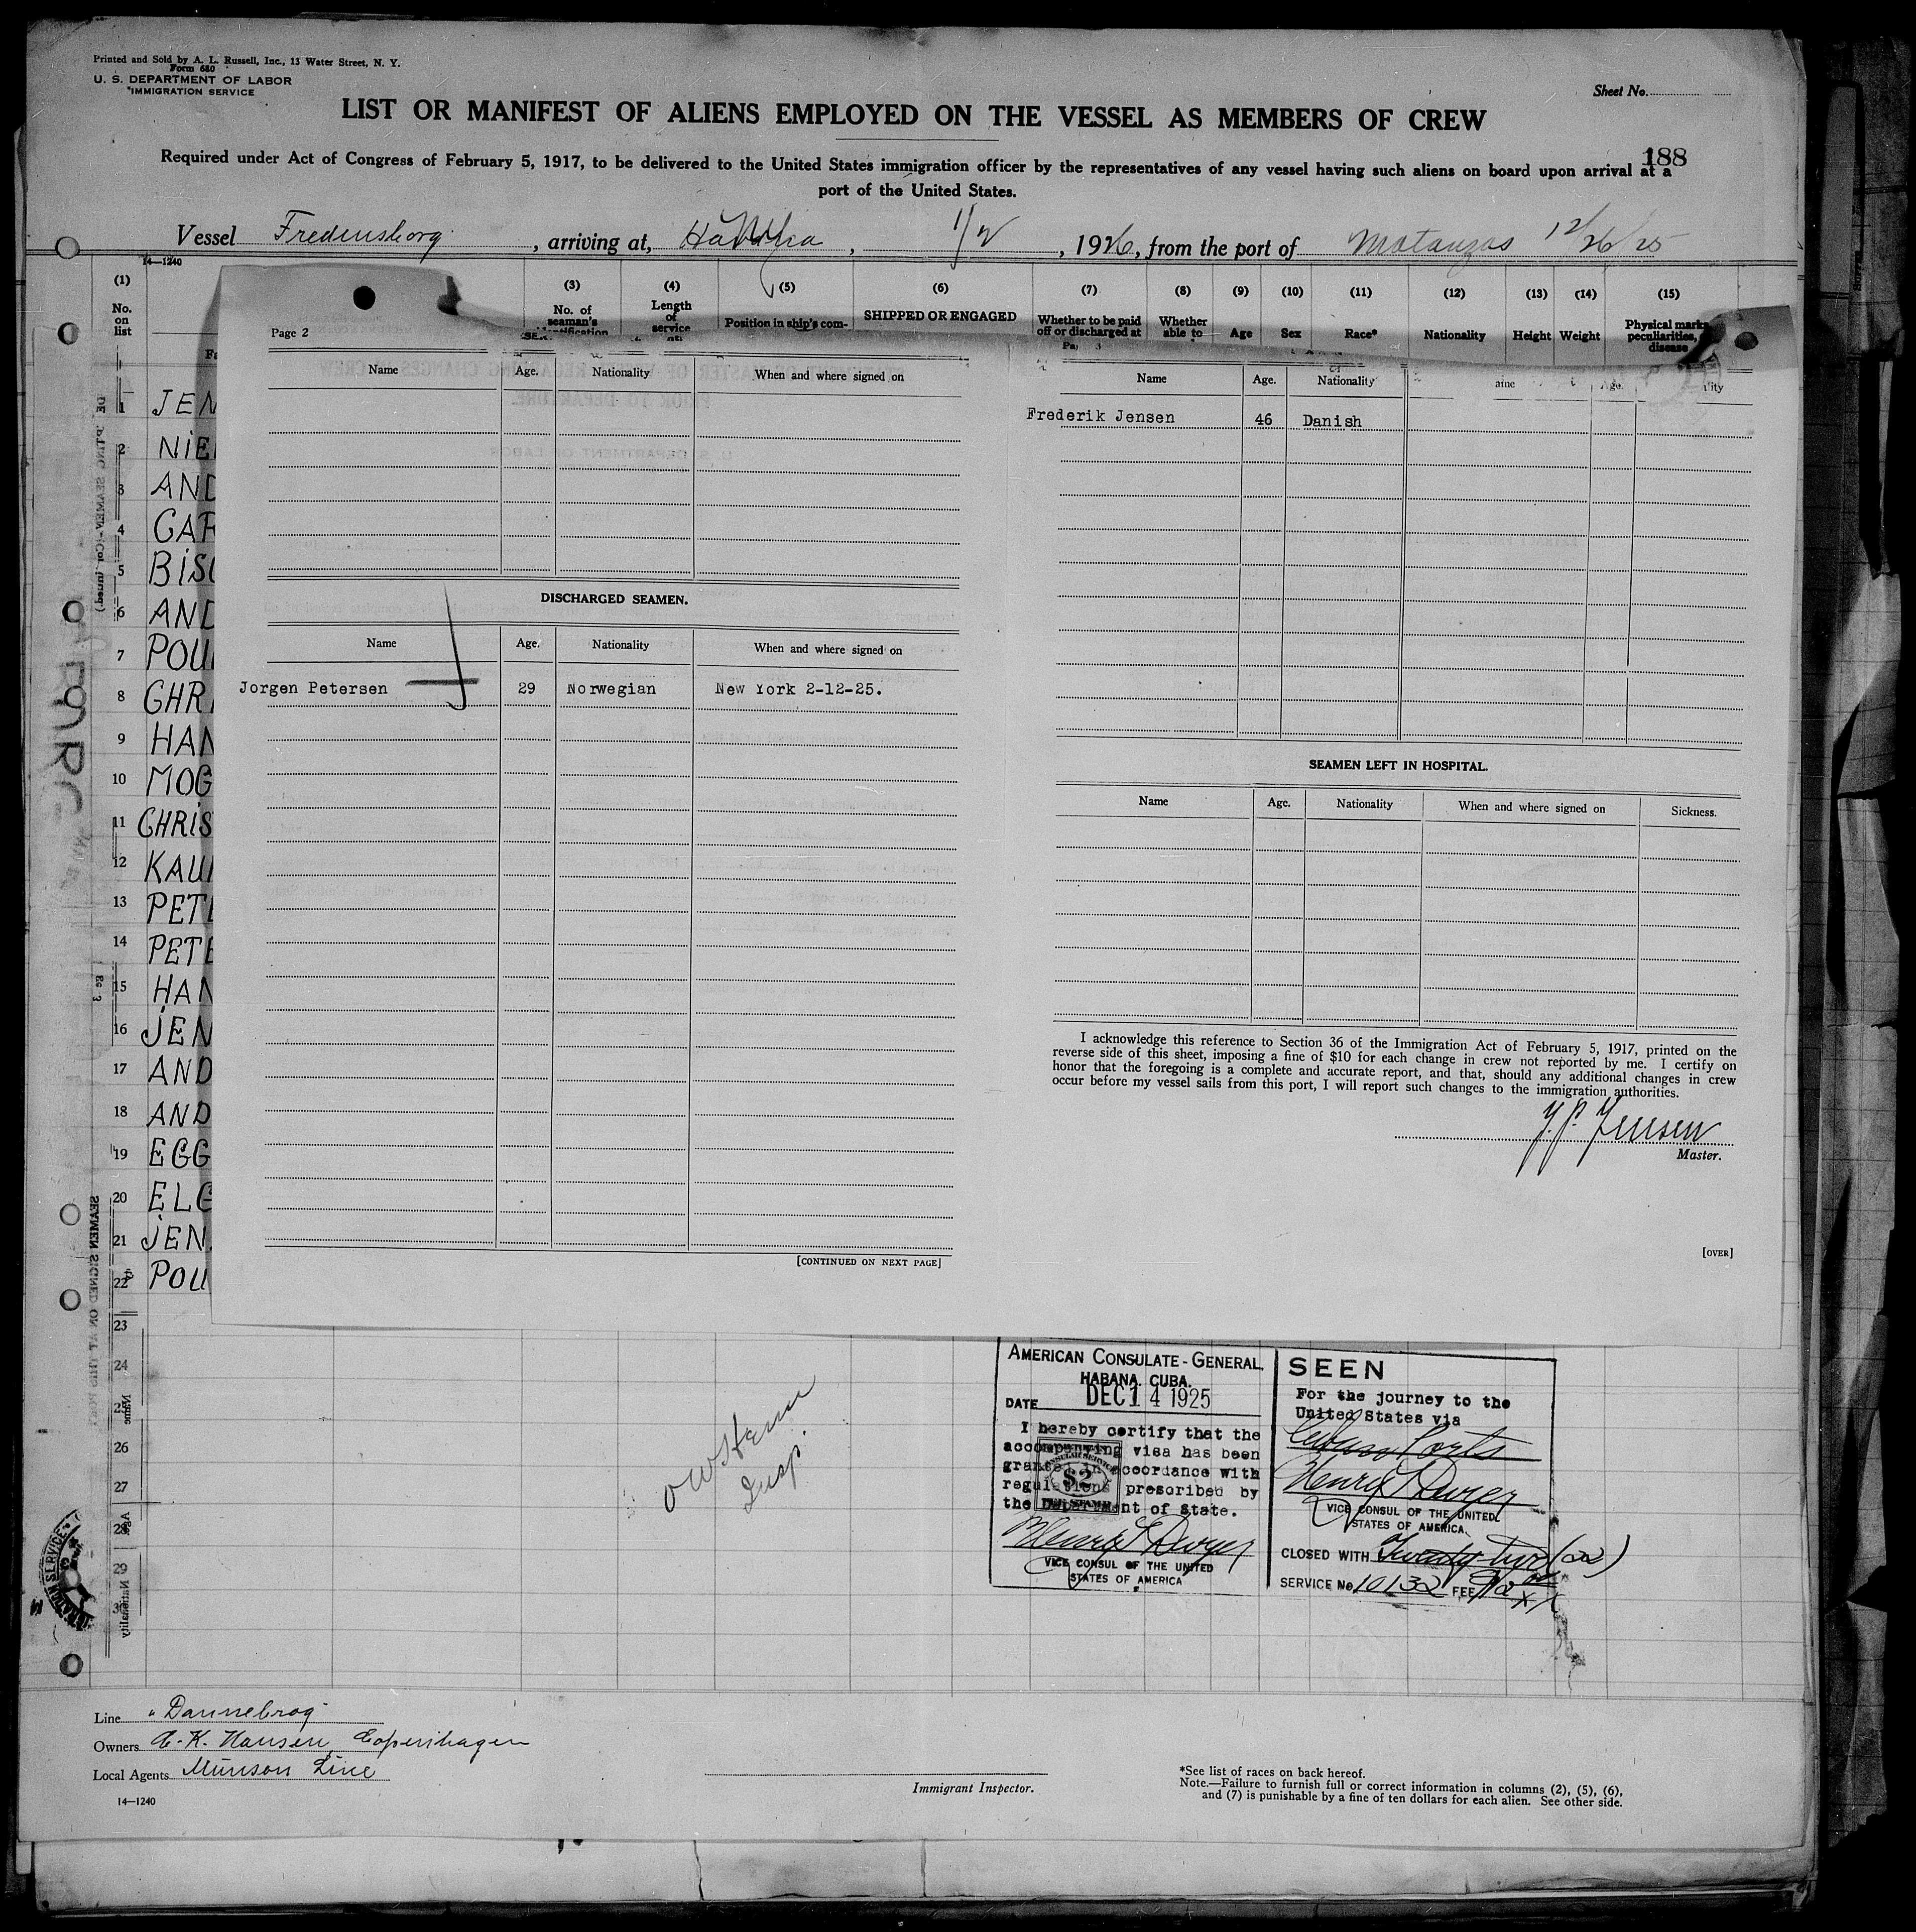 Printed and Sold by A. L. Russell, Inc., 13 Water Street, N. Y.
Form 680
U. S. DEPARTMENT OF LABOR
IMMIGRATION SERVICE
Sheet No.
LIST OR MANIFEST OF ALIENS EMPLOYED ON THE VESSEL AS MEMBERS OF CREW
188
Required under Act of Congress of February 5, 1917, to be delivered to the United States immigration officer by the representatives of any vessel having such aliens on board upon arrival at a
port of the United States.
Vessel Fredensborg, arriving at, , 1/2, 1926, from the port of Matanzas 12/26/25
14—1240
(1) (3) (4) (5) (6) (7) (8) (9) (10) (11) (12) (13) (14) (15)
No. on list
No. of seaman's identification
Length of service
Position in ship's com-
SHIPPED OR ENGAGED
Whether to be paid off or discharged at
Whether able to
Age
Sex
Race*
Nationality
Height
Weight
Physical marks, peculiarities, disease
1 JEN
2 NIE
3 AND
4 CAR
5 BIS
6 AND
7 POU
8 CHR
9 HAN
10 MOG
11 CHRIS
12 KAU
13 PET
14 PETE
15 HAN
16 JEN
17 AND
18 AND
19 EGG
20 ELG
21 JEN
22 POU
23
24
25
26
27
28
29
30
Page 2
Name Age. Nationality When and where signed on
DISCHARGED SEAMEN.
Name Age. Nationality When and where signed on
Jorgen Petersen 29 Norwegian New York 2-12-25.
[CONTINUED ON NEXT PAGE]
Name Age. Nationality
Frederik Jensen 46 Danish
SEAMEN LEFT IN HOSPITAL.
Name Age. Nationality When and where signed on Sickness.
I acknowledge this reference to Section 36 of the Immigration Act of February 5, 1917, printed on the
reverse side of this sheet, imposing a fine of $10 for each change in crew not reported by me. I certify on
honor that the foregoing is a complete and accurate report, and that, should any additional changes in crew
occur before my vessel sails from this port, I will report such changes to the immigration authorities.
Jensen
Master.
[OVER]
Insp.
AMERICAN CONSULATE-GENERAL,
HABANA, CUBA.
DATE DEC 14 1925
I hereby certify that the
accompanying visa has been
granted in accordance with
regulations prescribed by
the Department of State.
$2
Henry T Dwyer
VICE CONSUL OF THE UNITED
STATES OF AMERICA
SEEN
For the journey to the
United States via
Cuban Ports
Henry T Dwyer
VICE CONSUL OF THE UNITED
STATES OF AMERICA.
CLOSED WITH Twenty two (22)
SERVICE No. 10132 FEE
Line "Dannebrog"
Owners C. K. Hansen, Copenhagen
Local Agents Munson Line
14—1240
Immigrant Inspector.
*See list of races on back hereof.
Note.—Failure to furnish full or correct information in columns (2), (5), (6),
and (7) is punishable by a fine of ten dollars for each alien. See other side.